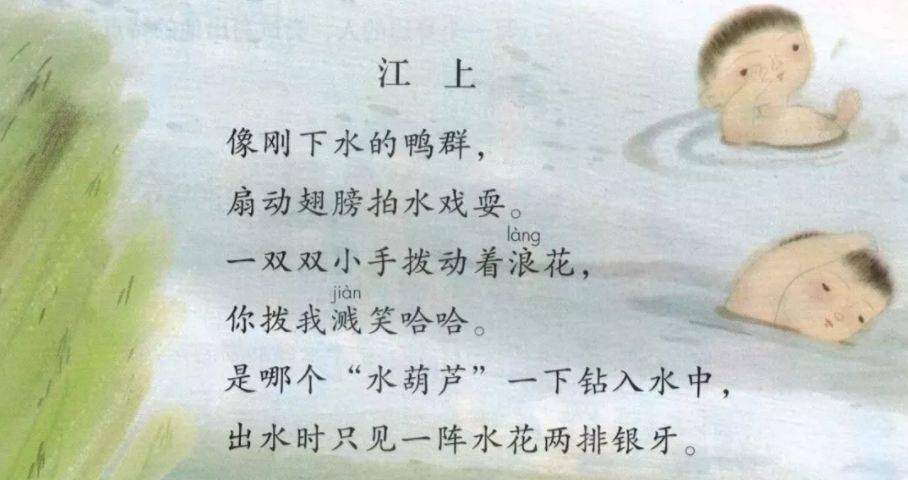 江 上
像刚下水的鸭群，
扇动翅膀拍水戏耍。
làng
一双双小手拨动着浪花，
jiàn
你拨我溅笑哈哈。
是哪个“水葫芦”一下钻入水中，
出水时只见一阵水花两排银牙。